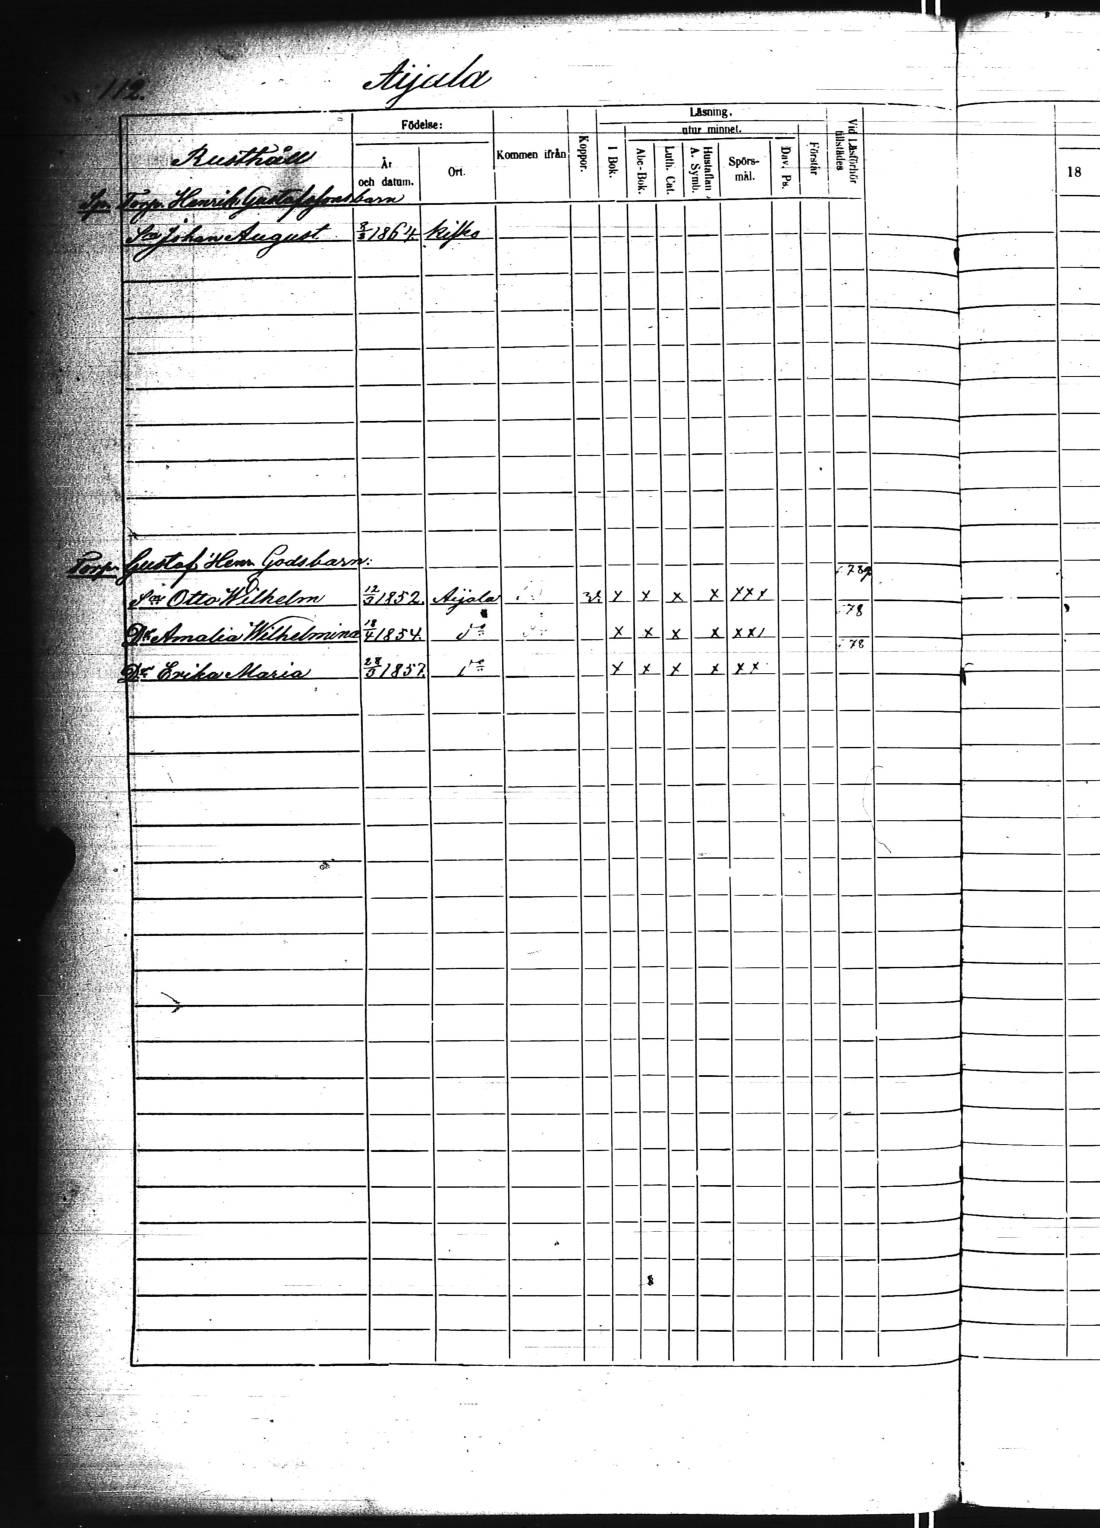 112.
Aijala
Rusthåll
Födelse:
År
och datum.
Ort.
Kommen ifrån
Koppor.
Läsning.
utur minnet.
I Bok.
Abc-Bok.
Luth. Cat.
Hustaflan
A. Symb.
Spörs-
mål.
Dav. Ps.
Förstår
Vid Läsförhör
tillstädes
18
Torpr. Henrik Gustafssons barn
Son Johan August 8/3 1864. Kisko
Torpr. Gustaf Henr. Godsbarn:
78
Son Otto Wilhelm 12/3 1852. Aijala x x x x x x x
78
Dr Amalia Wilhelmina 18/4 1854. do x x x x x x /
78
Dr Erika Maria 28/3 1857. do x x x x x x